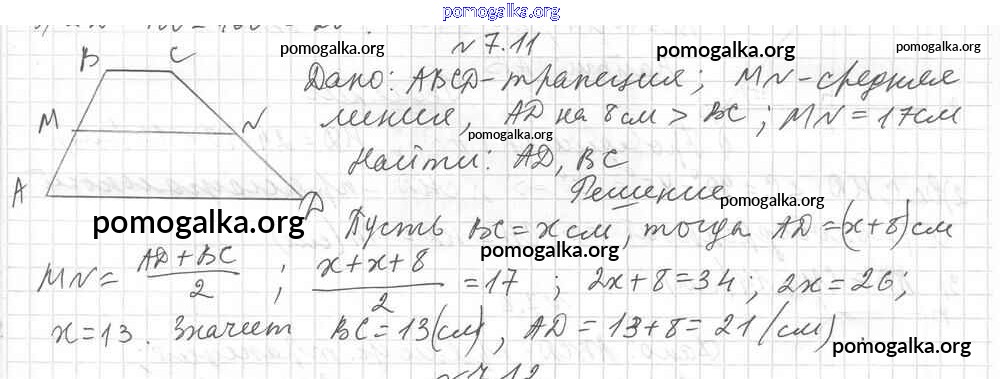 pomogalka.org
N 7.11
pomogalka.org pomogalka.org
Дано: ABCD - трапеция; MN - средняя
линия, AD на 8 см > BC; MN = 17 см
pomogalka.org
Найти: AD, BC
Решение
pomogalka.org
pomogalka.org
Пусть BC = x см, тогда AD = (x + 8) см
pomogalka.org
MN = (AD + BC)/2 ; (x + x + 8)/2 = 17 ; 2x + 8 = 34 ; 2x = 26;
x = 13. Значит BC = 13 (см), AD = 13 + 8 = 21 (см)
pomogalka.org
B C
M N
A D